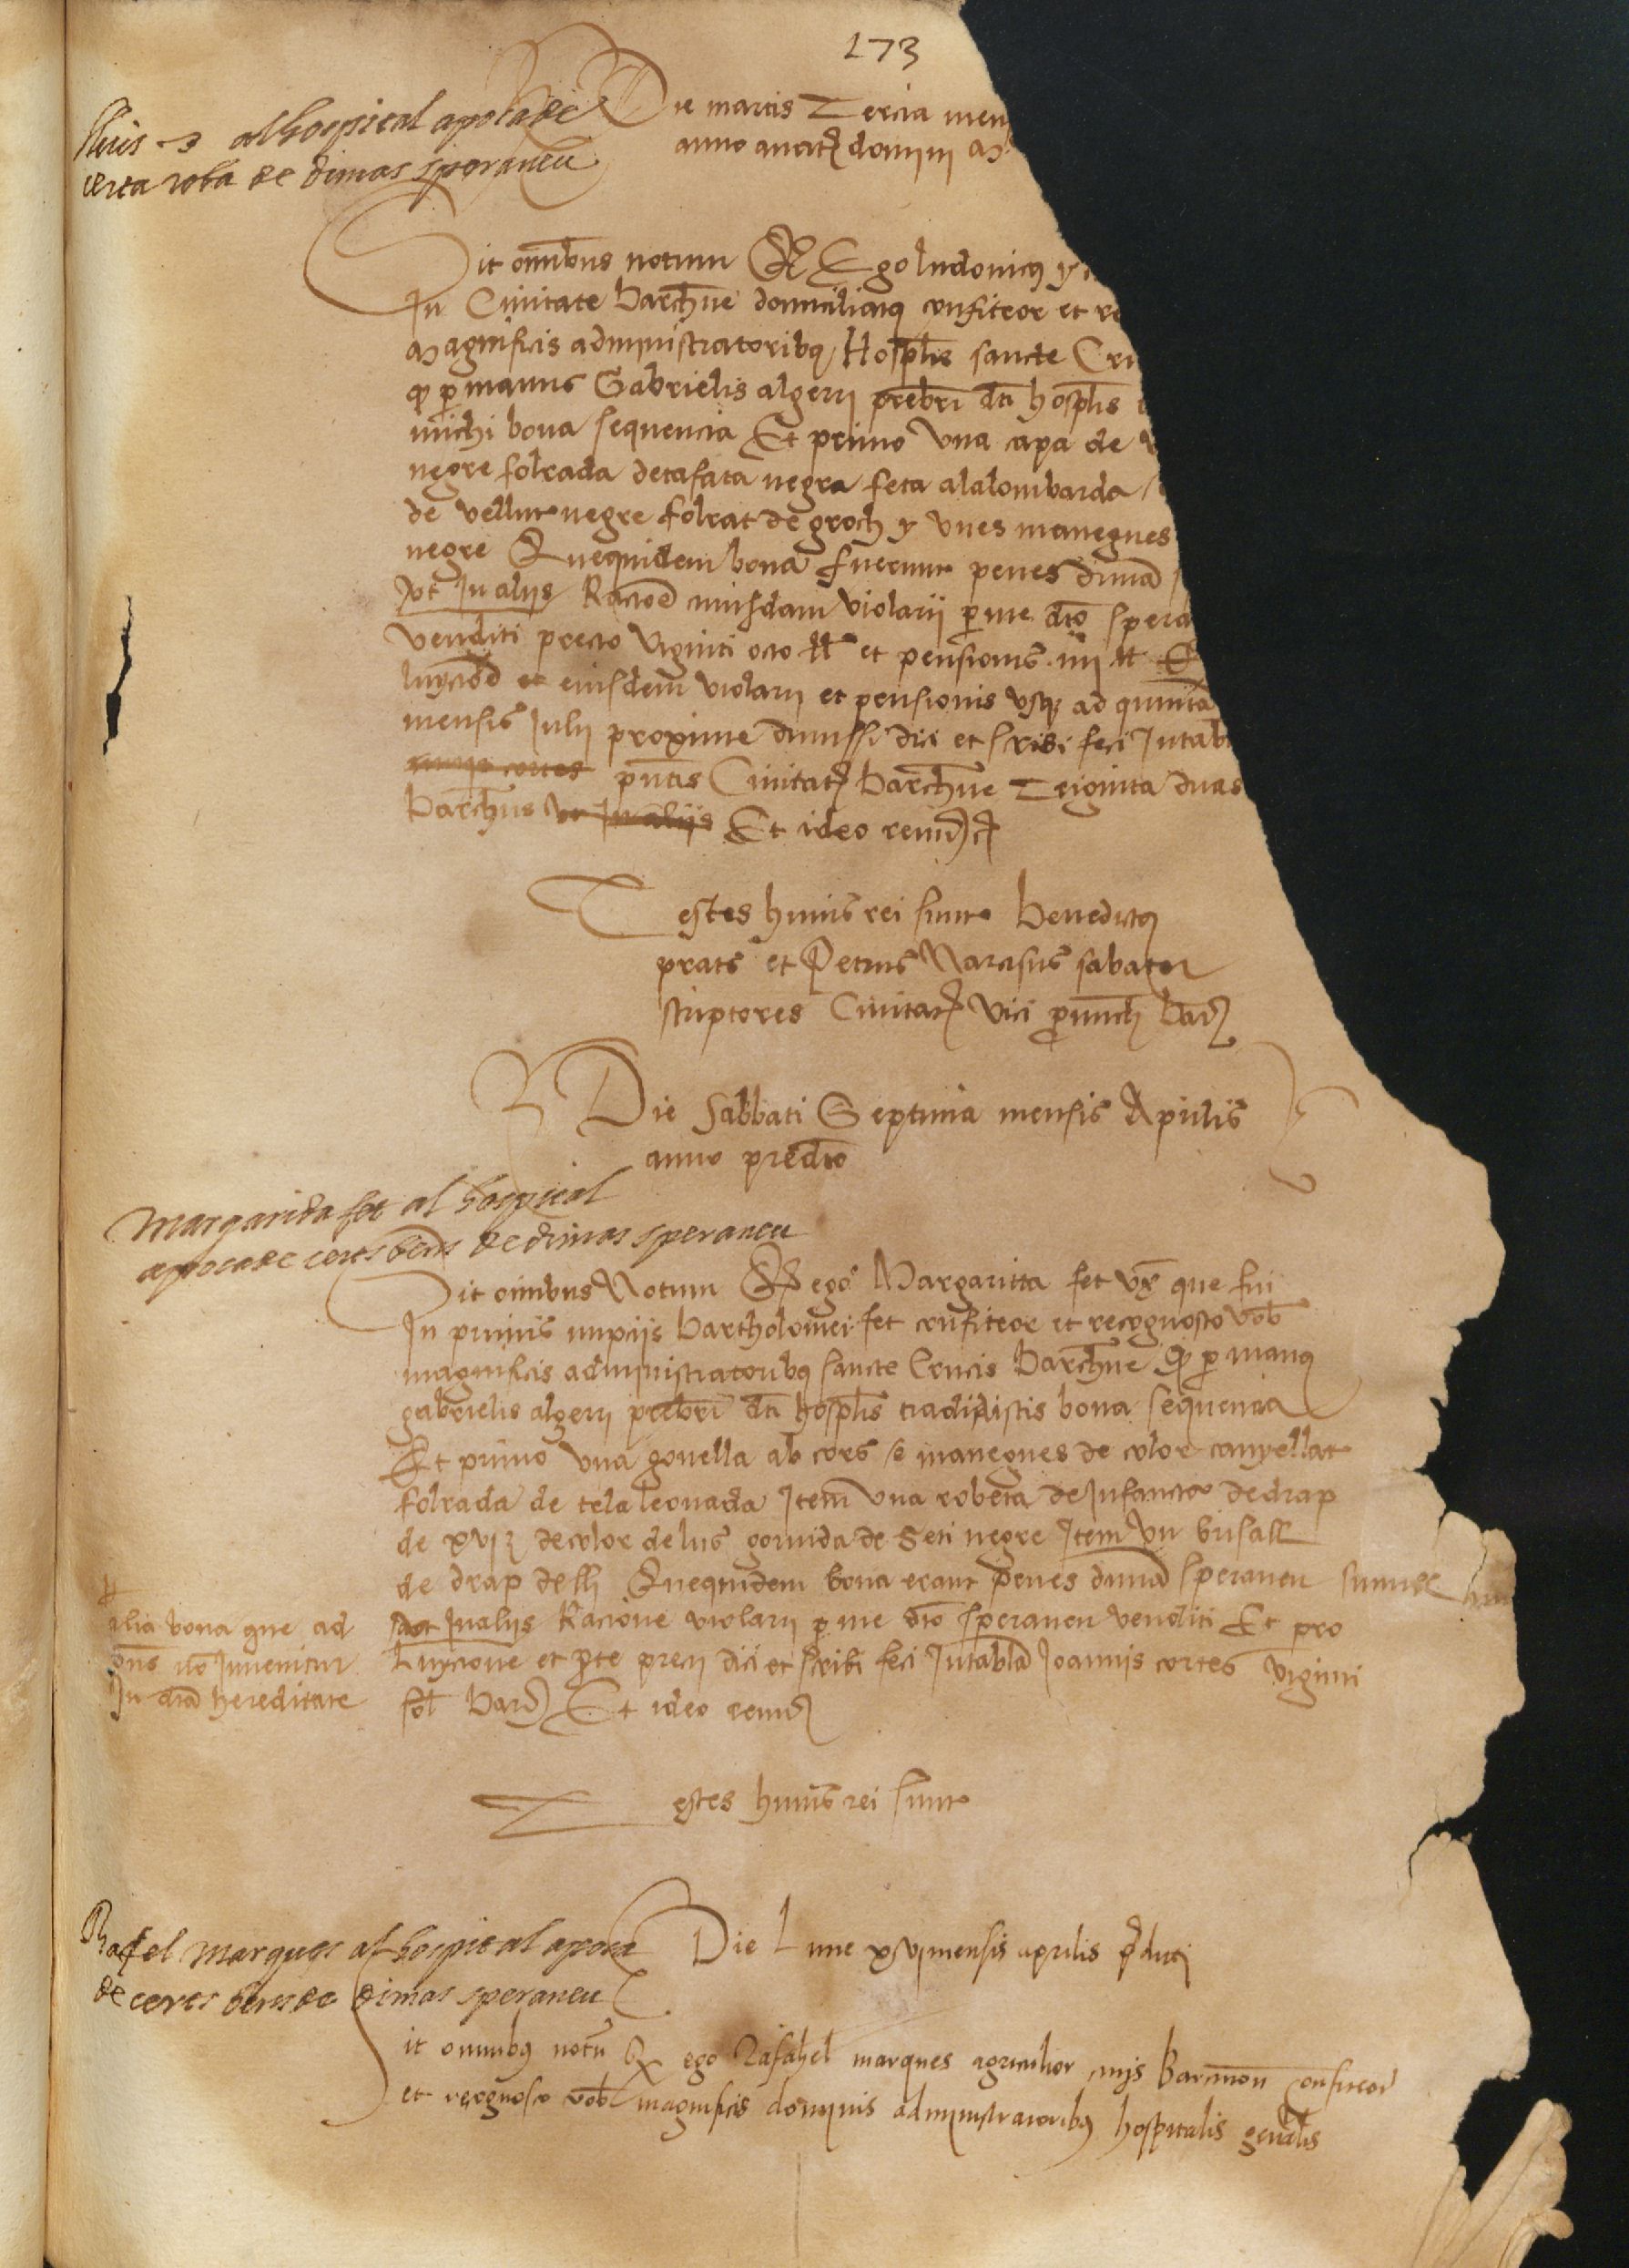 273
al hospital apoca de
certa roba de dimas speraneu
Die martis Tercia men
anno a natꝭ domini
Sit omnibus notum Q Ego ludovicꝰ
In Civitate barchne domiciliatꝰ confiteor et re
Magnificis administratoribꝰ Hosplis sancte Cru
ꝙ ꝑ manus Gabrielis algerij prebri dti hosplis
michi bona sequencia Et primo una capa de
negre folrada de tafata negra feta a la lombarda
de vellut negre folrat de groch y unes manegues
negre Quequidem bona fuerunt penes dimã
ut In alijs Racioe cuiusdam violarii ꝑ me dto spera
venditi precio viginti octo ℔ et pensionis iiij ℔ E
luycioe et eiusdem violarij et pensionis usqꝫ ad quinta
mensis Julij proxime dimissi dici et scribi feci In tab
cortes pntis Civitatꝭ barchne Triginta duas
barchns ut In alijs Et ideo renuꝭ
Testes huius rei sunt benedictꝰ
prats et Petrus Narcisus sabater
scriptores Civitatꝭ Vici ꝓ nunch barꝭ
Die sabbati Septima mensis Aprilis
anno predto
Margarida fet al hospital
apoca de certs bens de dimas speraneu
Sit oimbus Notum Q ego Margaritta fet uxꝭ que fui
In primis nupciis bartholomei fet confiteor et recognosco vob
magnificis administratoribꝰ sancte Crucis barchne ꝙ ꝑ manꝰ
gabrielis algerij prebri dti hosplis tradidistis bona sequencia
Et primo una gonella ab cors e manegues de color canyellat
folrada de tela leonada Item una robeta de Infanto de drap
de color de lus gornida de Seti negre Item un brisall
de drap Quequidem bona erant penes dimã speraneu simul
ut In alijs Racione violarij ꝑ me dto speraneu venditi Et pro
luycione et ꝑte precij dici et scribi feci In tabla Joannis cortes viginti
sol barꝭ Et ideo renuꝭ
alia bona que ad
pns no Invenitur
In dta hereditate
Testes huius rei sunt
Rafel marques al hospital apoca
de certs bens de dimas speraneu
Die Lune xvj mensis aprilis ꝓdicti
Sit omnibꝰ notũ Q ego Rafahel marques agricultor civis Barcinon confiteor
et recognosco vob magnificis dominis administratoribꝰ hospitalis genalis